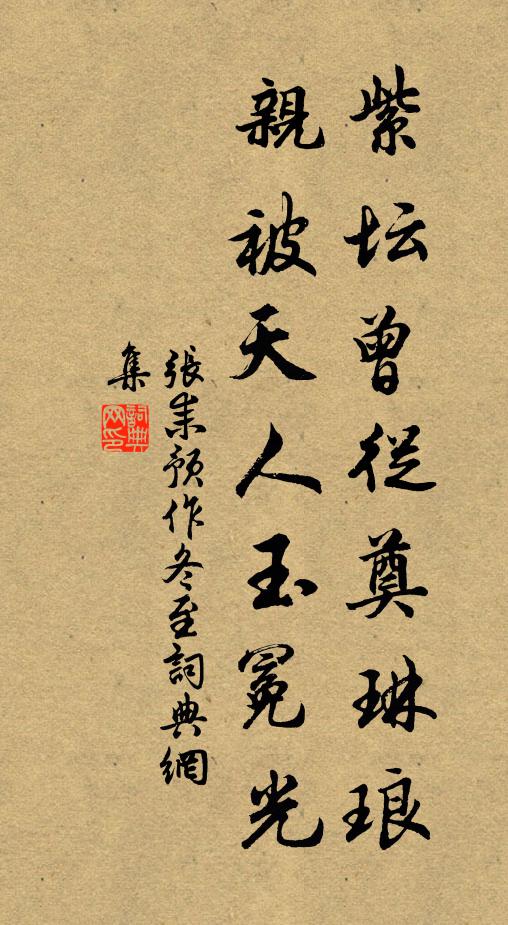 紫坛曾從奠琳琅
親被天人玉冕光
張耒預作冬至詞典網
集
詞典
网印